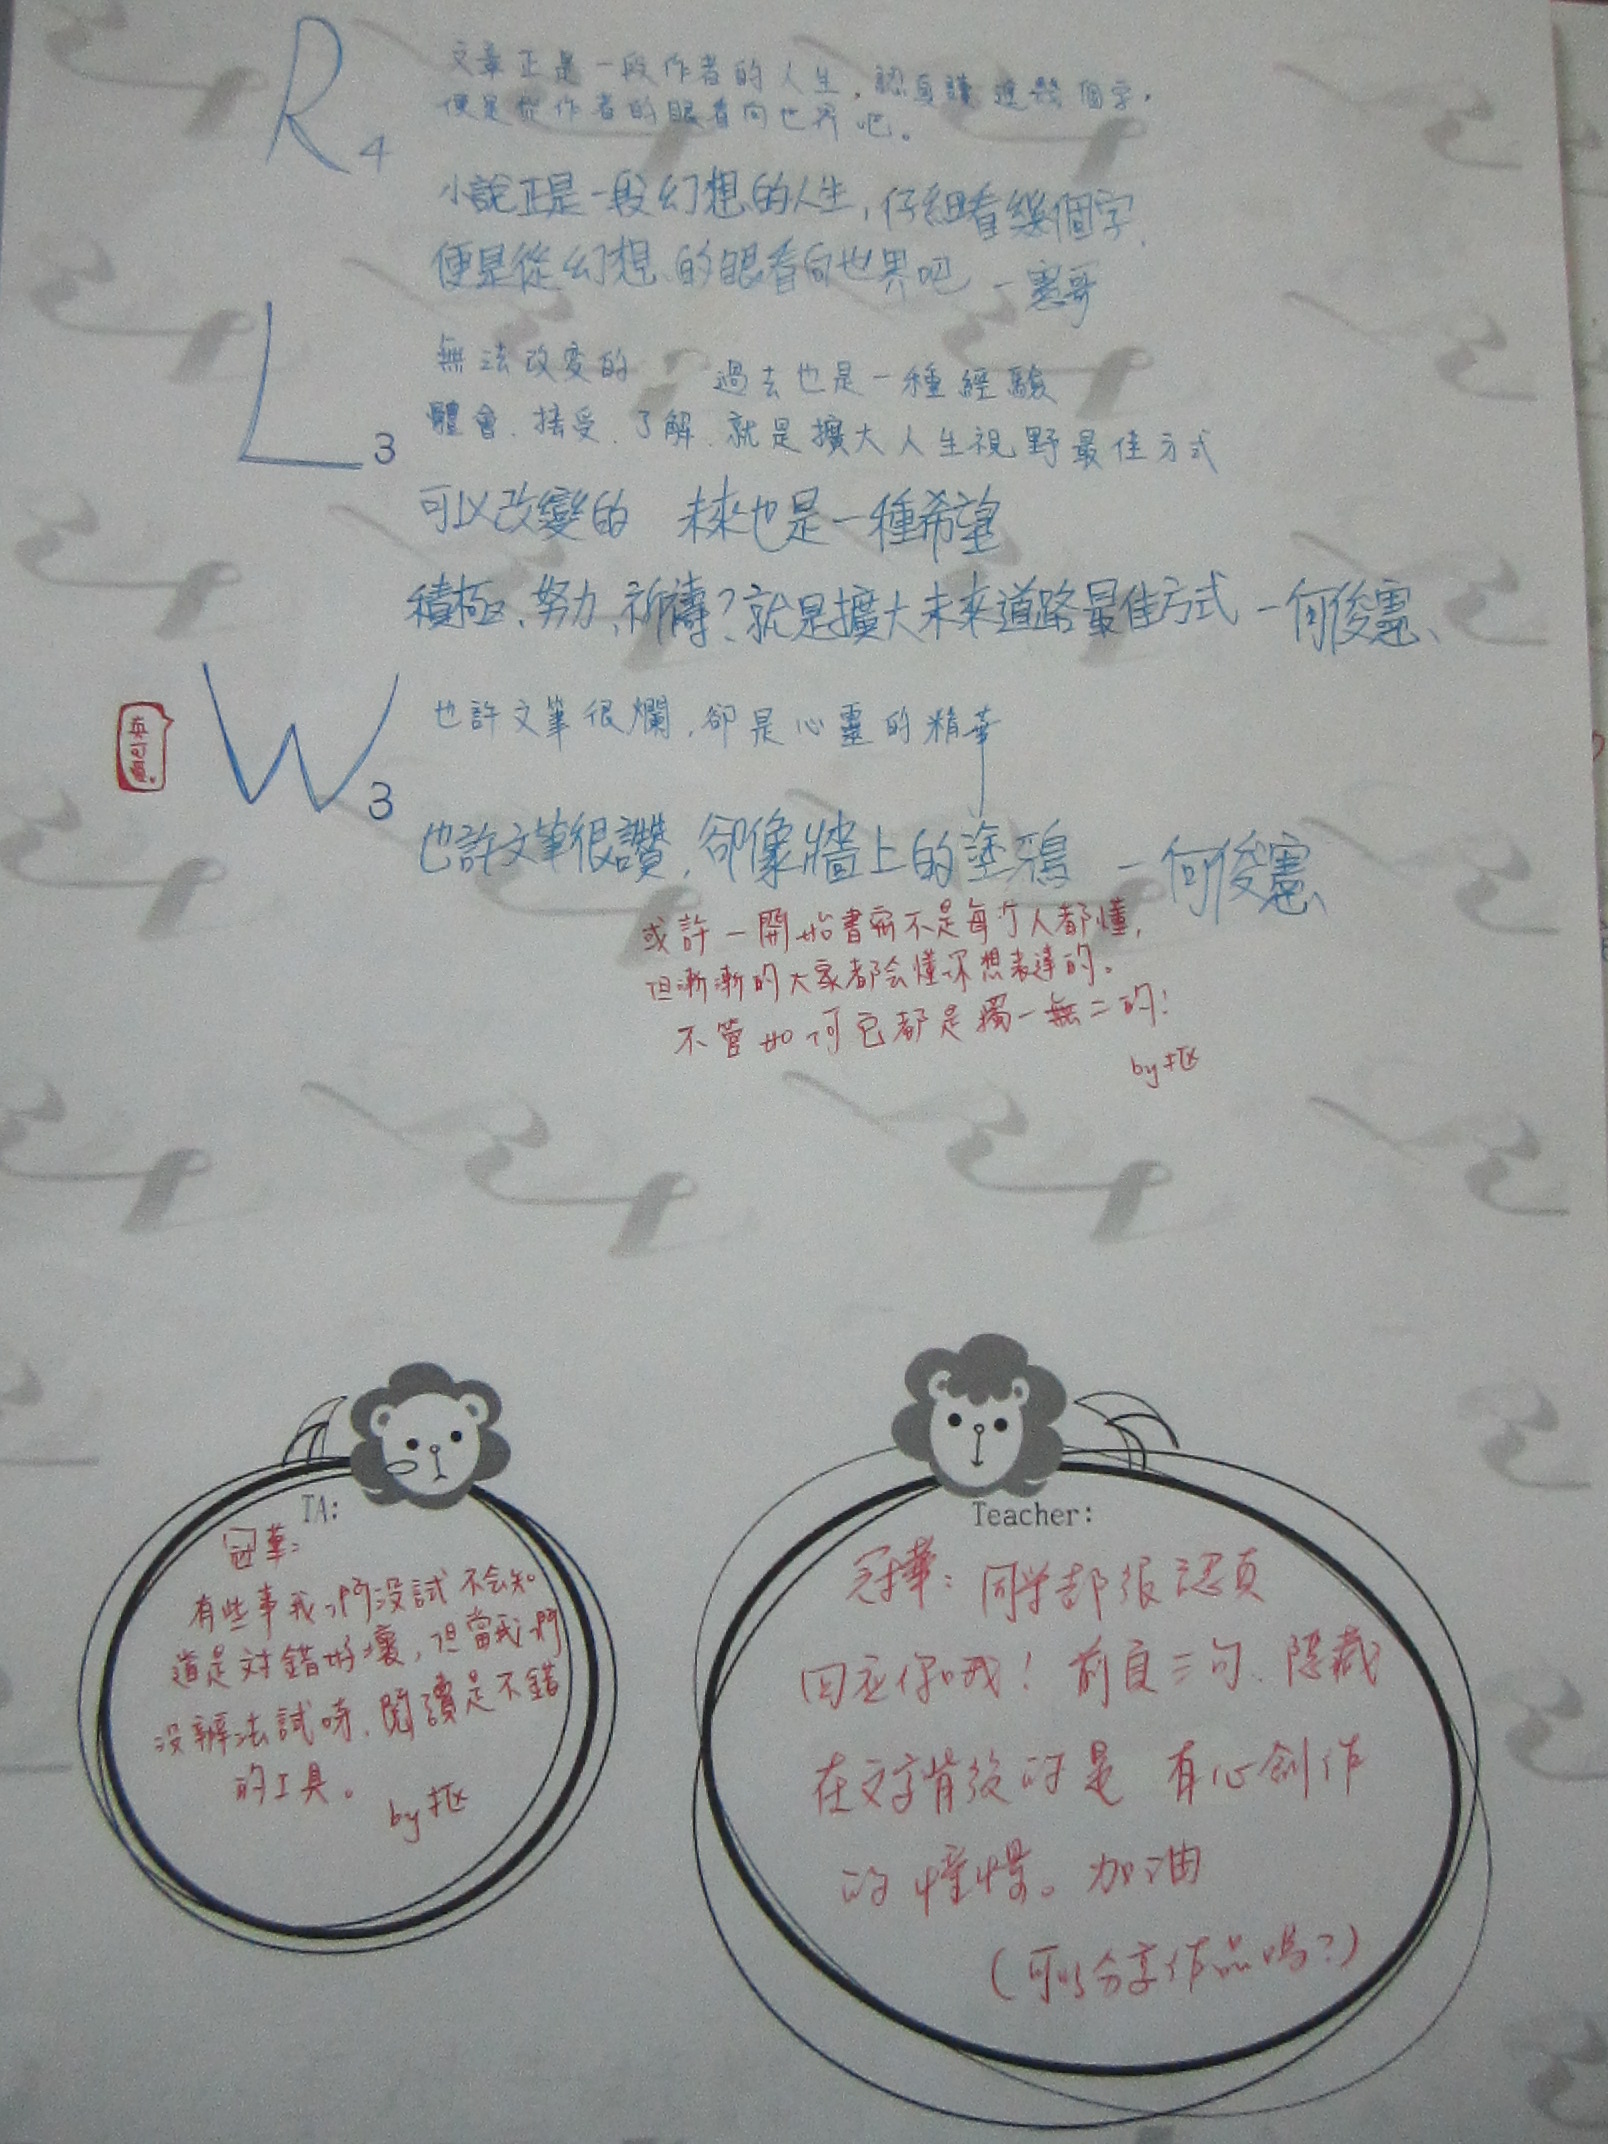 R4
文章正是一段作者的人生，認真讀這幾個字，
便是從作者的眼看向世界吧。
小說正是一段幻想的人生，仔細看幾個字，
便是從幻想的眼看向世界吧 －憲哥
L3
無法改變的 過去也是一種經驗
體會、接受、了解、就是擴大人生視野最佳方式
可以改變的 未來也是一種希望
積極、努力、祈禱？就是擴大未來道路最佳方式 －何俊憲、
W3
也許文筆很爛，卻是心靈的精華
也許文筆很讚，卻像牆上的塗鴉 －何俊憲、
或許一開始書寫不是每个人都懂，
但漸漸的大家都会懂你想表達的。
不管如何它都是獨一無二的！
by 抠
TA:
冠華：
有些事我們沒試不会知
道是对錯好壞，但當我們
沒辦法試時，閱讀是不錯
的工具。
by 抠
Teacher:
冠華：同学都很認真
回应你哦！前頁三句、隱藏
在文字背後的是 有心創作
的憧憬。加油
（可以分享作品嗎？）